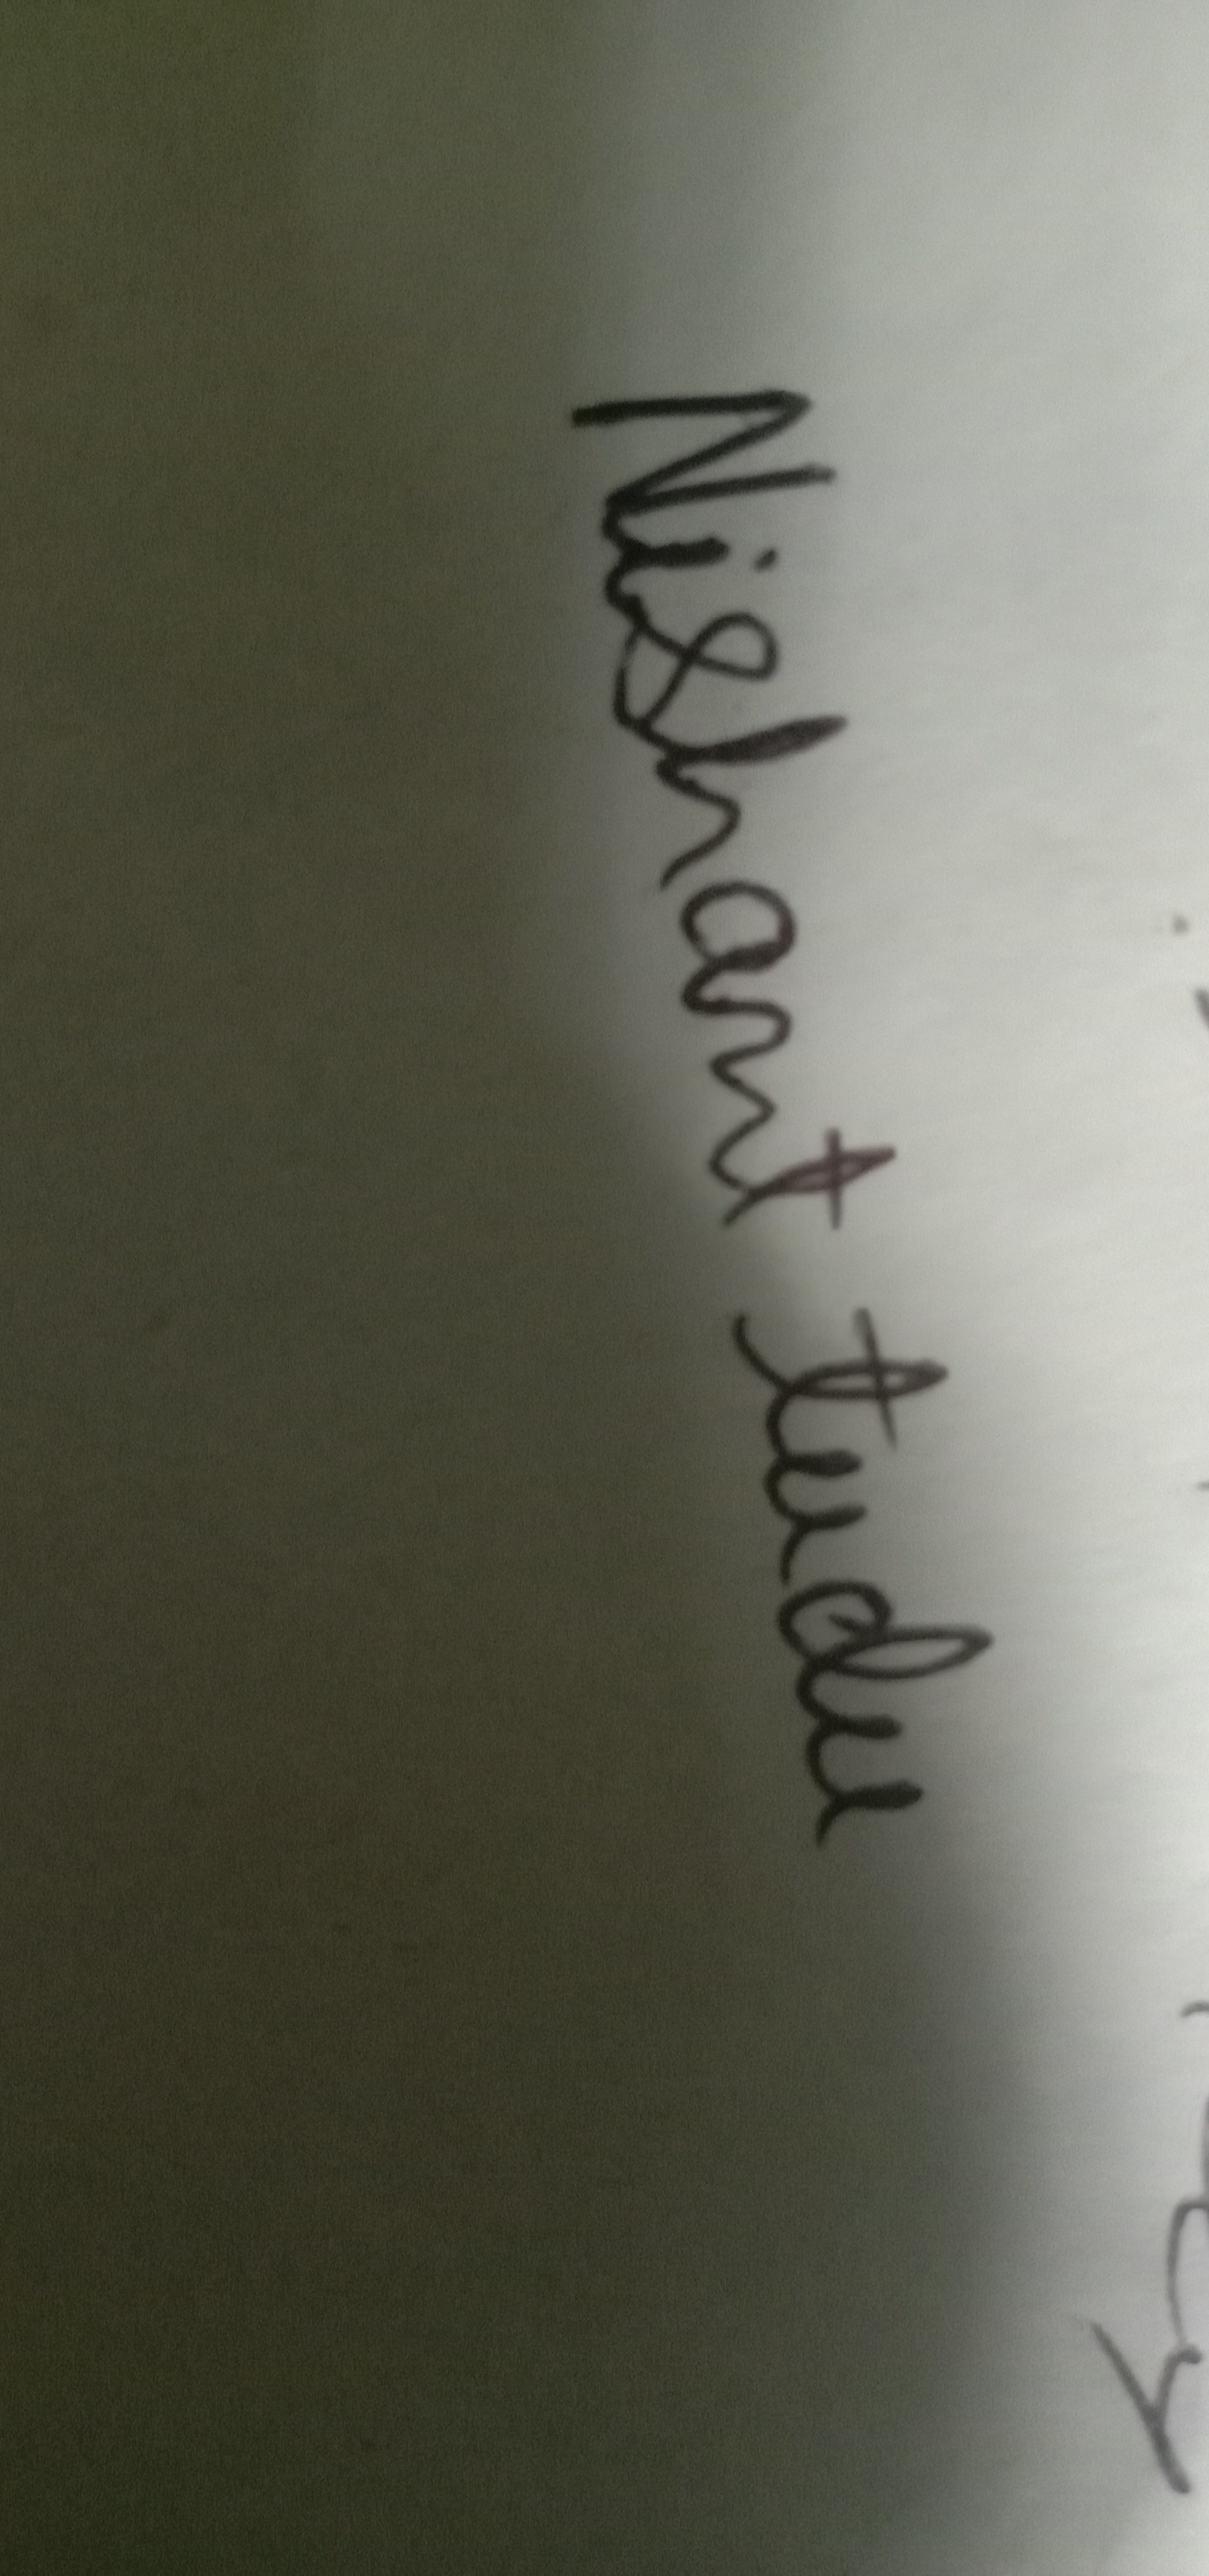 Nishant tudu